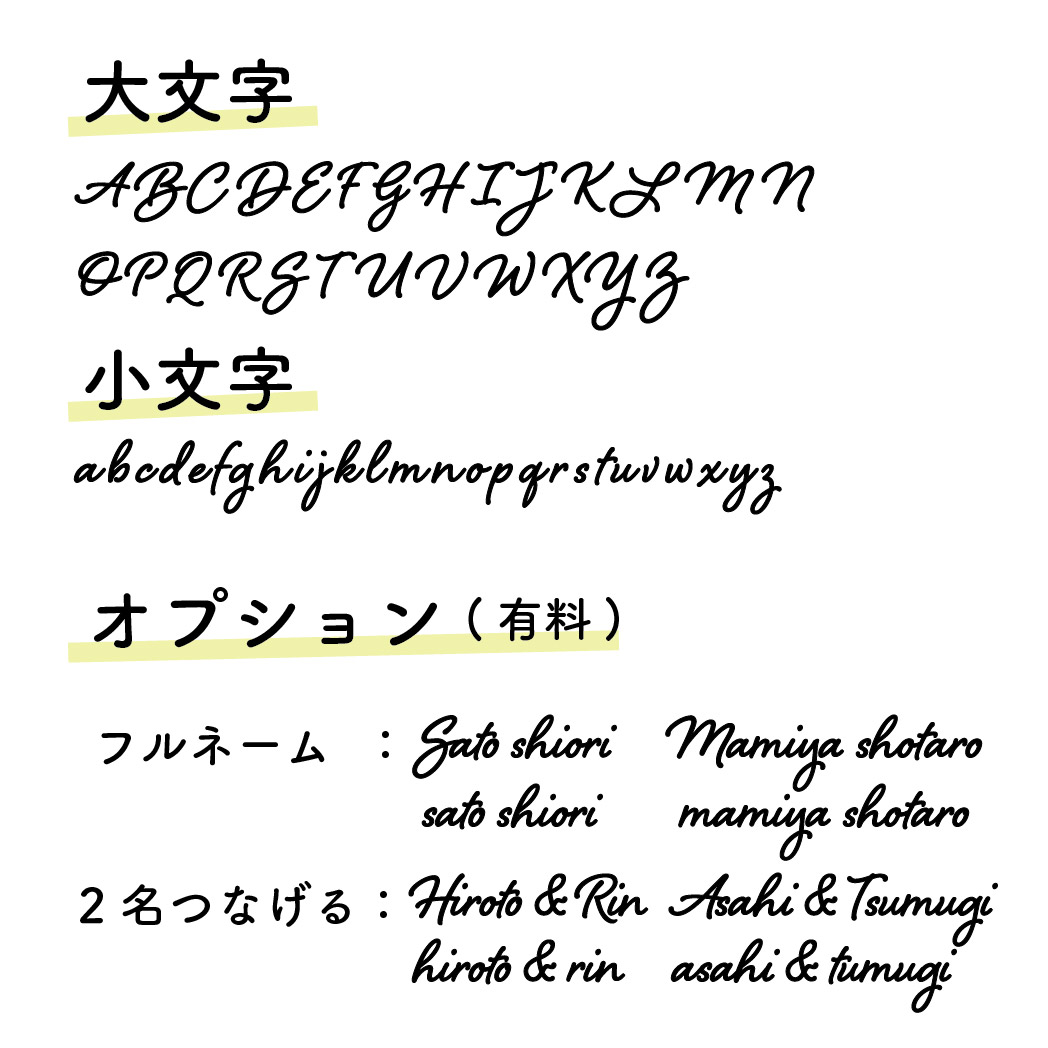 大文字
ABCDEFGHIJKLMN
OPQRSTUVWXYZ
小文字
abcdefghijklmnopqrstuvwxyz
オプション(有料)
フルネーム : Sato shiori Mamiya shotaro
sato shiori mamiya shotaro
2名つなげる : Hiroto & Rin Asahi & Tsumugi
hiroto & rin asahi & tumugi